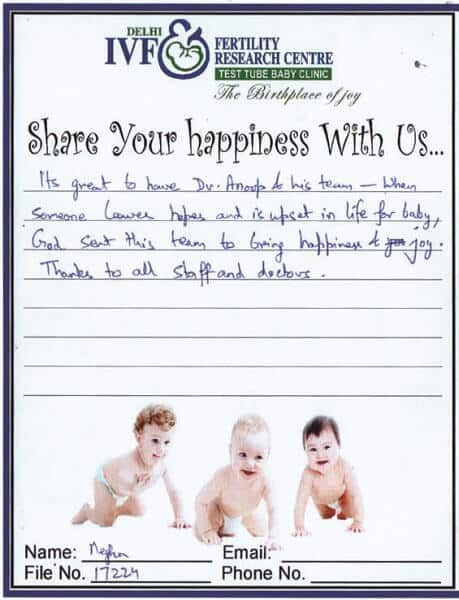 DELHI
IVF & FERTILITY
RESEARCH CENTRE
TEST TUBE BABY CLINIC
The Birthplace of joy
Share Your happiness With Us...
Its great to have Dr. Anoop & his team – When
someone lower hopes and is upset in life for baby,
God sent this team to bring happiness & joy.
Thanks to all staff and doctors.
Name: Megha
Email:
File No. 17224
Phone No.